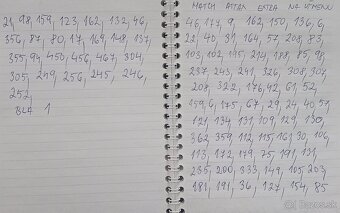 21, 98, 159, 123, 162, 132, 46,
356, 87, 80, 17, 169, 148, 137,
355, 94, 450, 456, 467, 304,
305, 249, 256, 245, 246,
252,
BLA 1
MATCH ATTAX EXTRA NA VÝMENU
46, 177, 9, 162, 150, 136, 6,
22, 40, 31, 164, 57, 208, 83,
103, 102, 195, 214, 188, 85, 98,
237, 243, 241, 326, 308, 307,
208, 322, 176, 42, 61, 52,
159, 6, 175, 67, 29, 24, 40, 57,
121, 134, 131, 109, 129, 130,
362, 359, 112, 115, 161, 30, 106,
113, 172, 179, 75, 191, 131,
235, 200, 333, 149, 105, 203,
181, 191, 36, 127, 154, 85